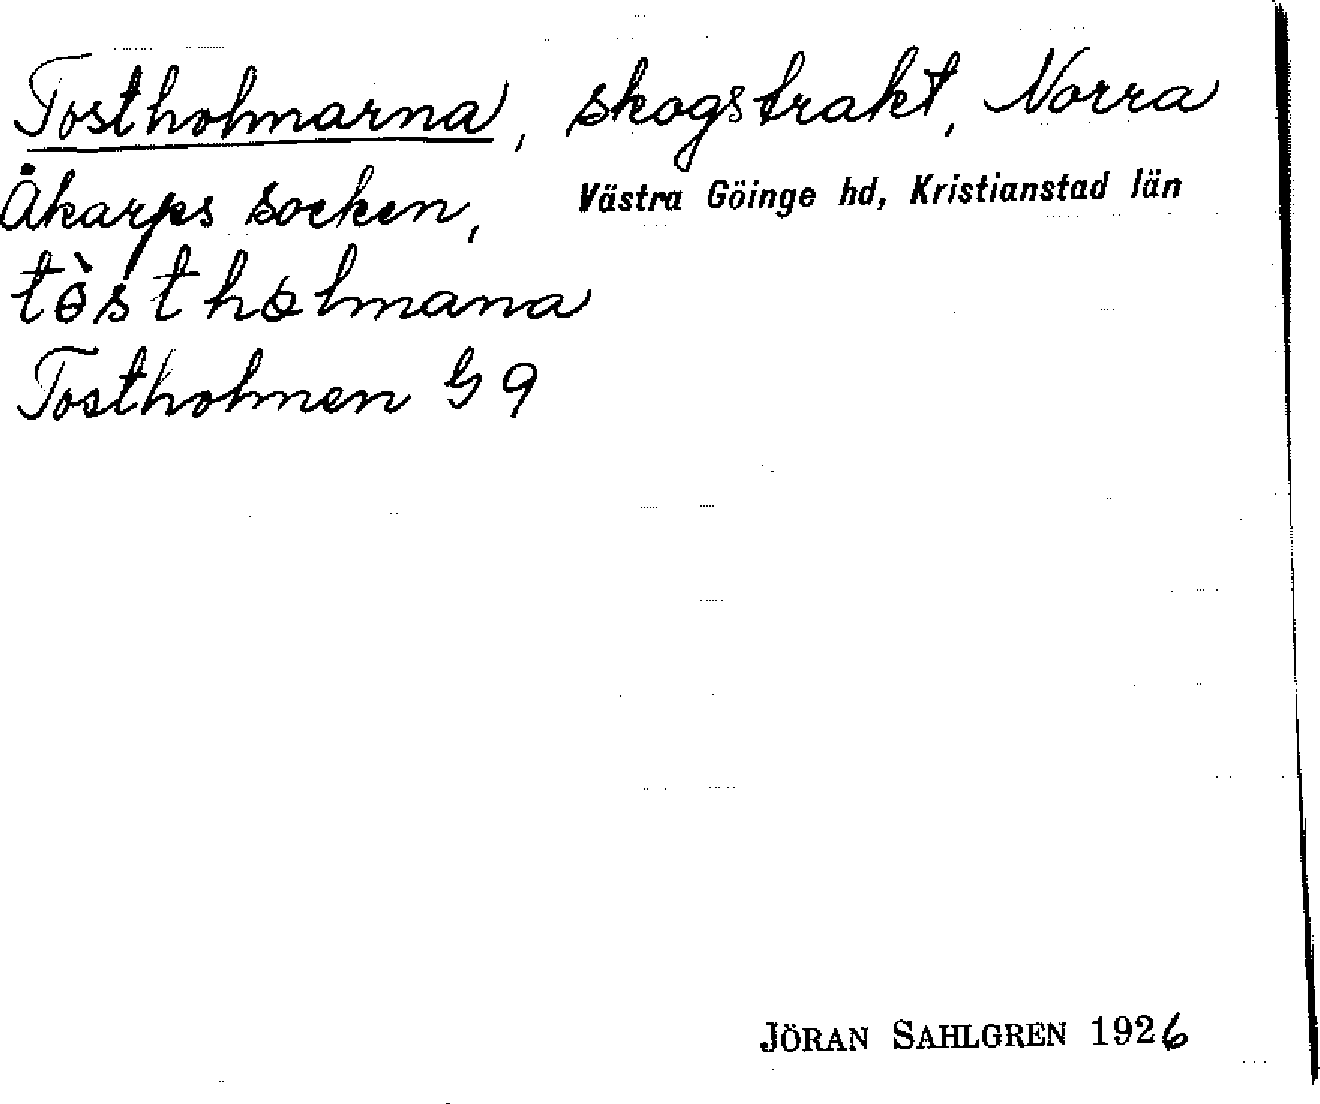 Tostholmarna, skogstrakt, Norra
Åkarps socken, Västra Göinge hd, Kristianstad län
tɵ̀stholmana
Tostholmen G 9
JÖRAN SAHLGREN 1926